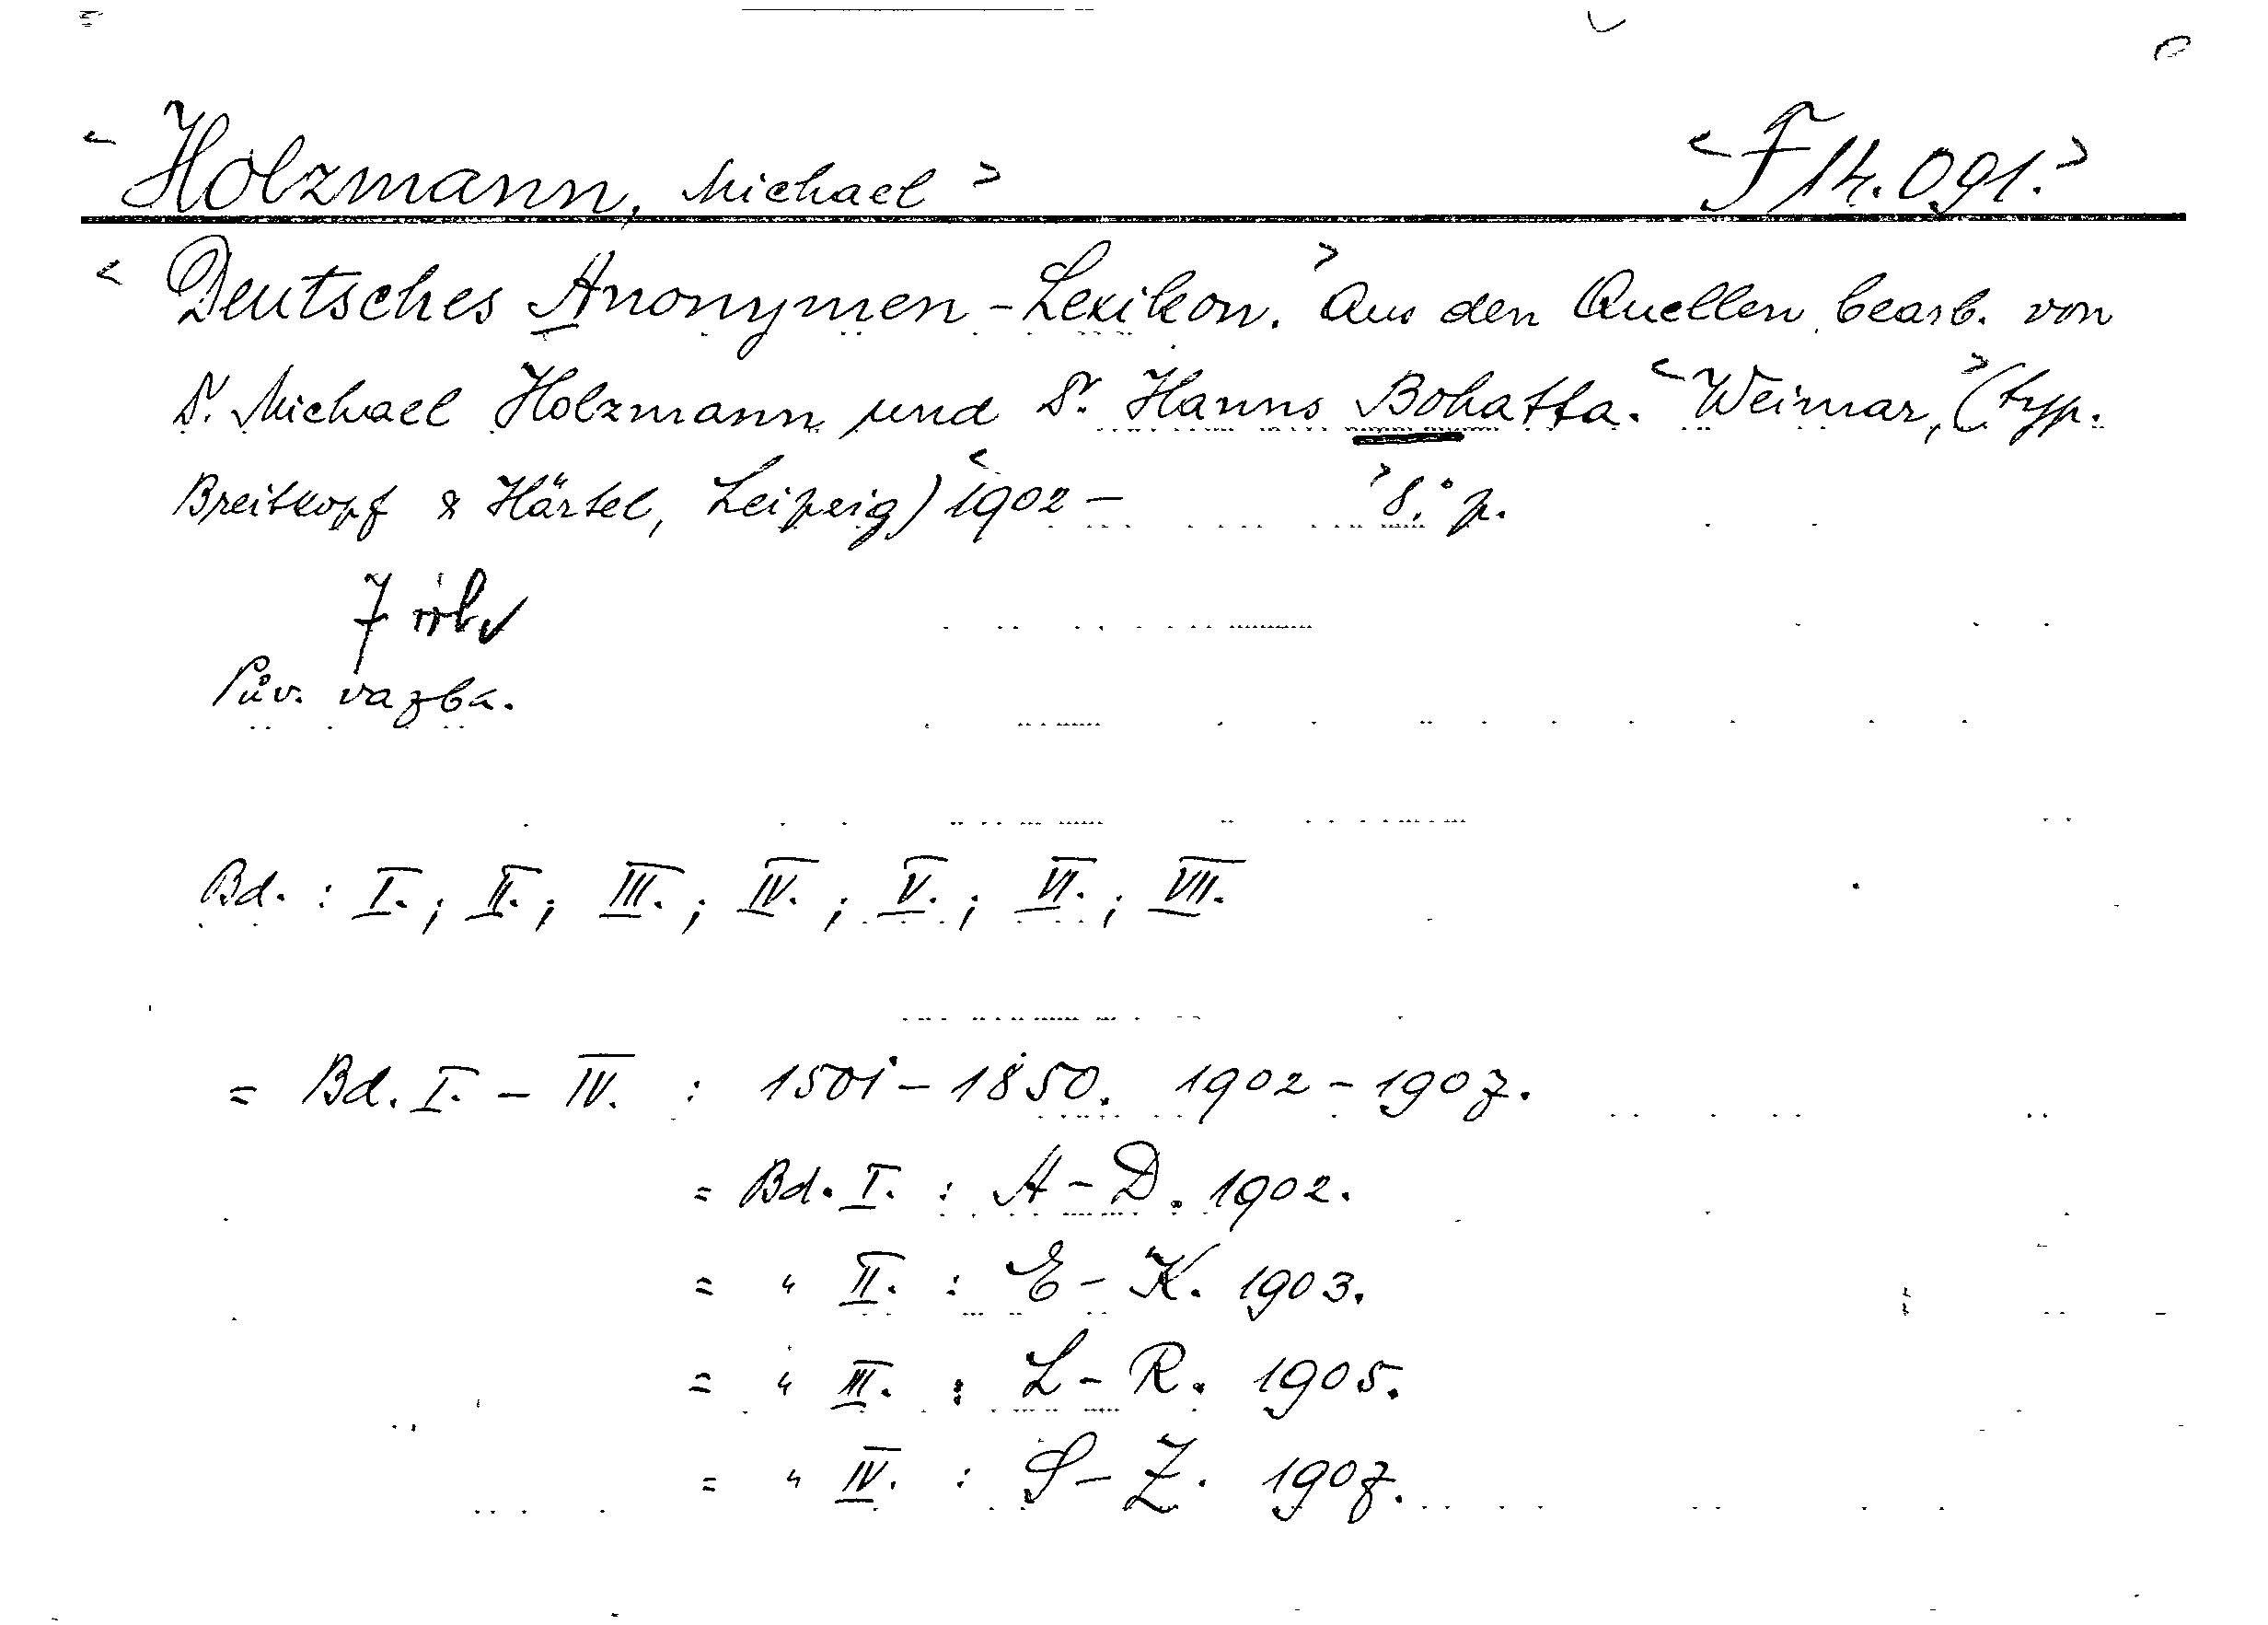 < Holzmann, Michael > < F 14.091. >
< Deutsches Anonymen-Lexikon. > Aus den Quellen bearb. von
Dr. Michael Holzmann und Dr. Hanns Bohatta. < Weimar, > (typ.
Breitkopf & Härtel, Leipzig) < 1902 - > 8.° p.
7
Pův. vazba.
Bd. : I. ; II. ; III. ; IV. ; V. ; VI. ; VII.
= Bd. I. - IV. : 1501 - 1850. 1902 - 1907.
= Bd. I. : A - D. 1902.
= " II. : E - K. 1903.
= " III. : L - R. 1905.
= " IV. : S - Z. 1907.